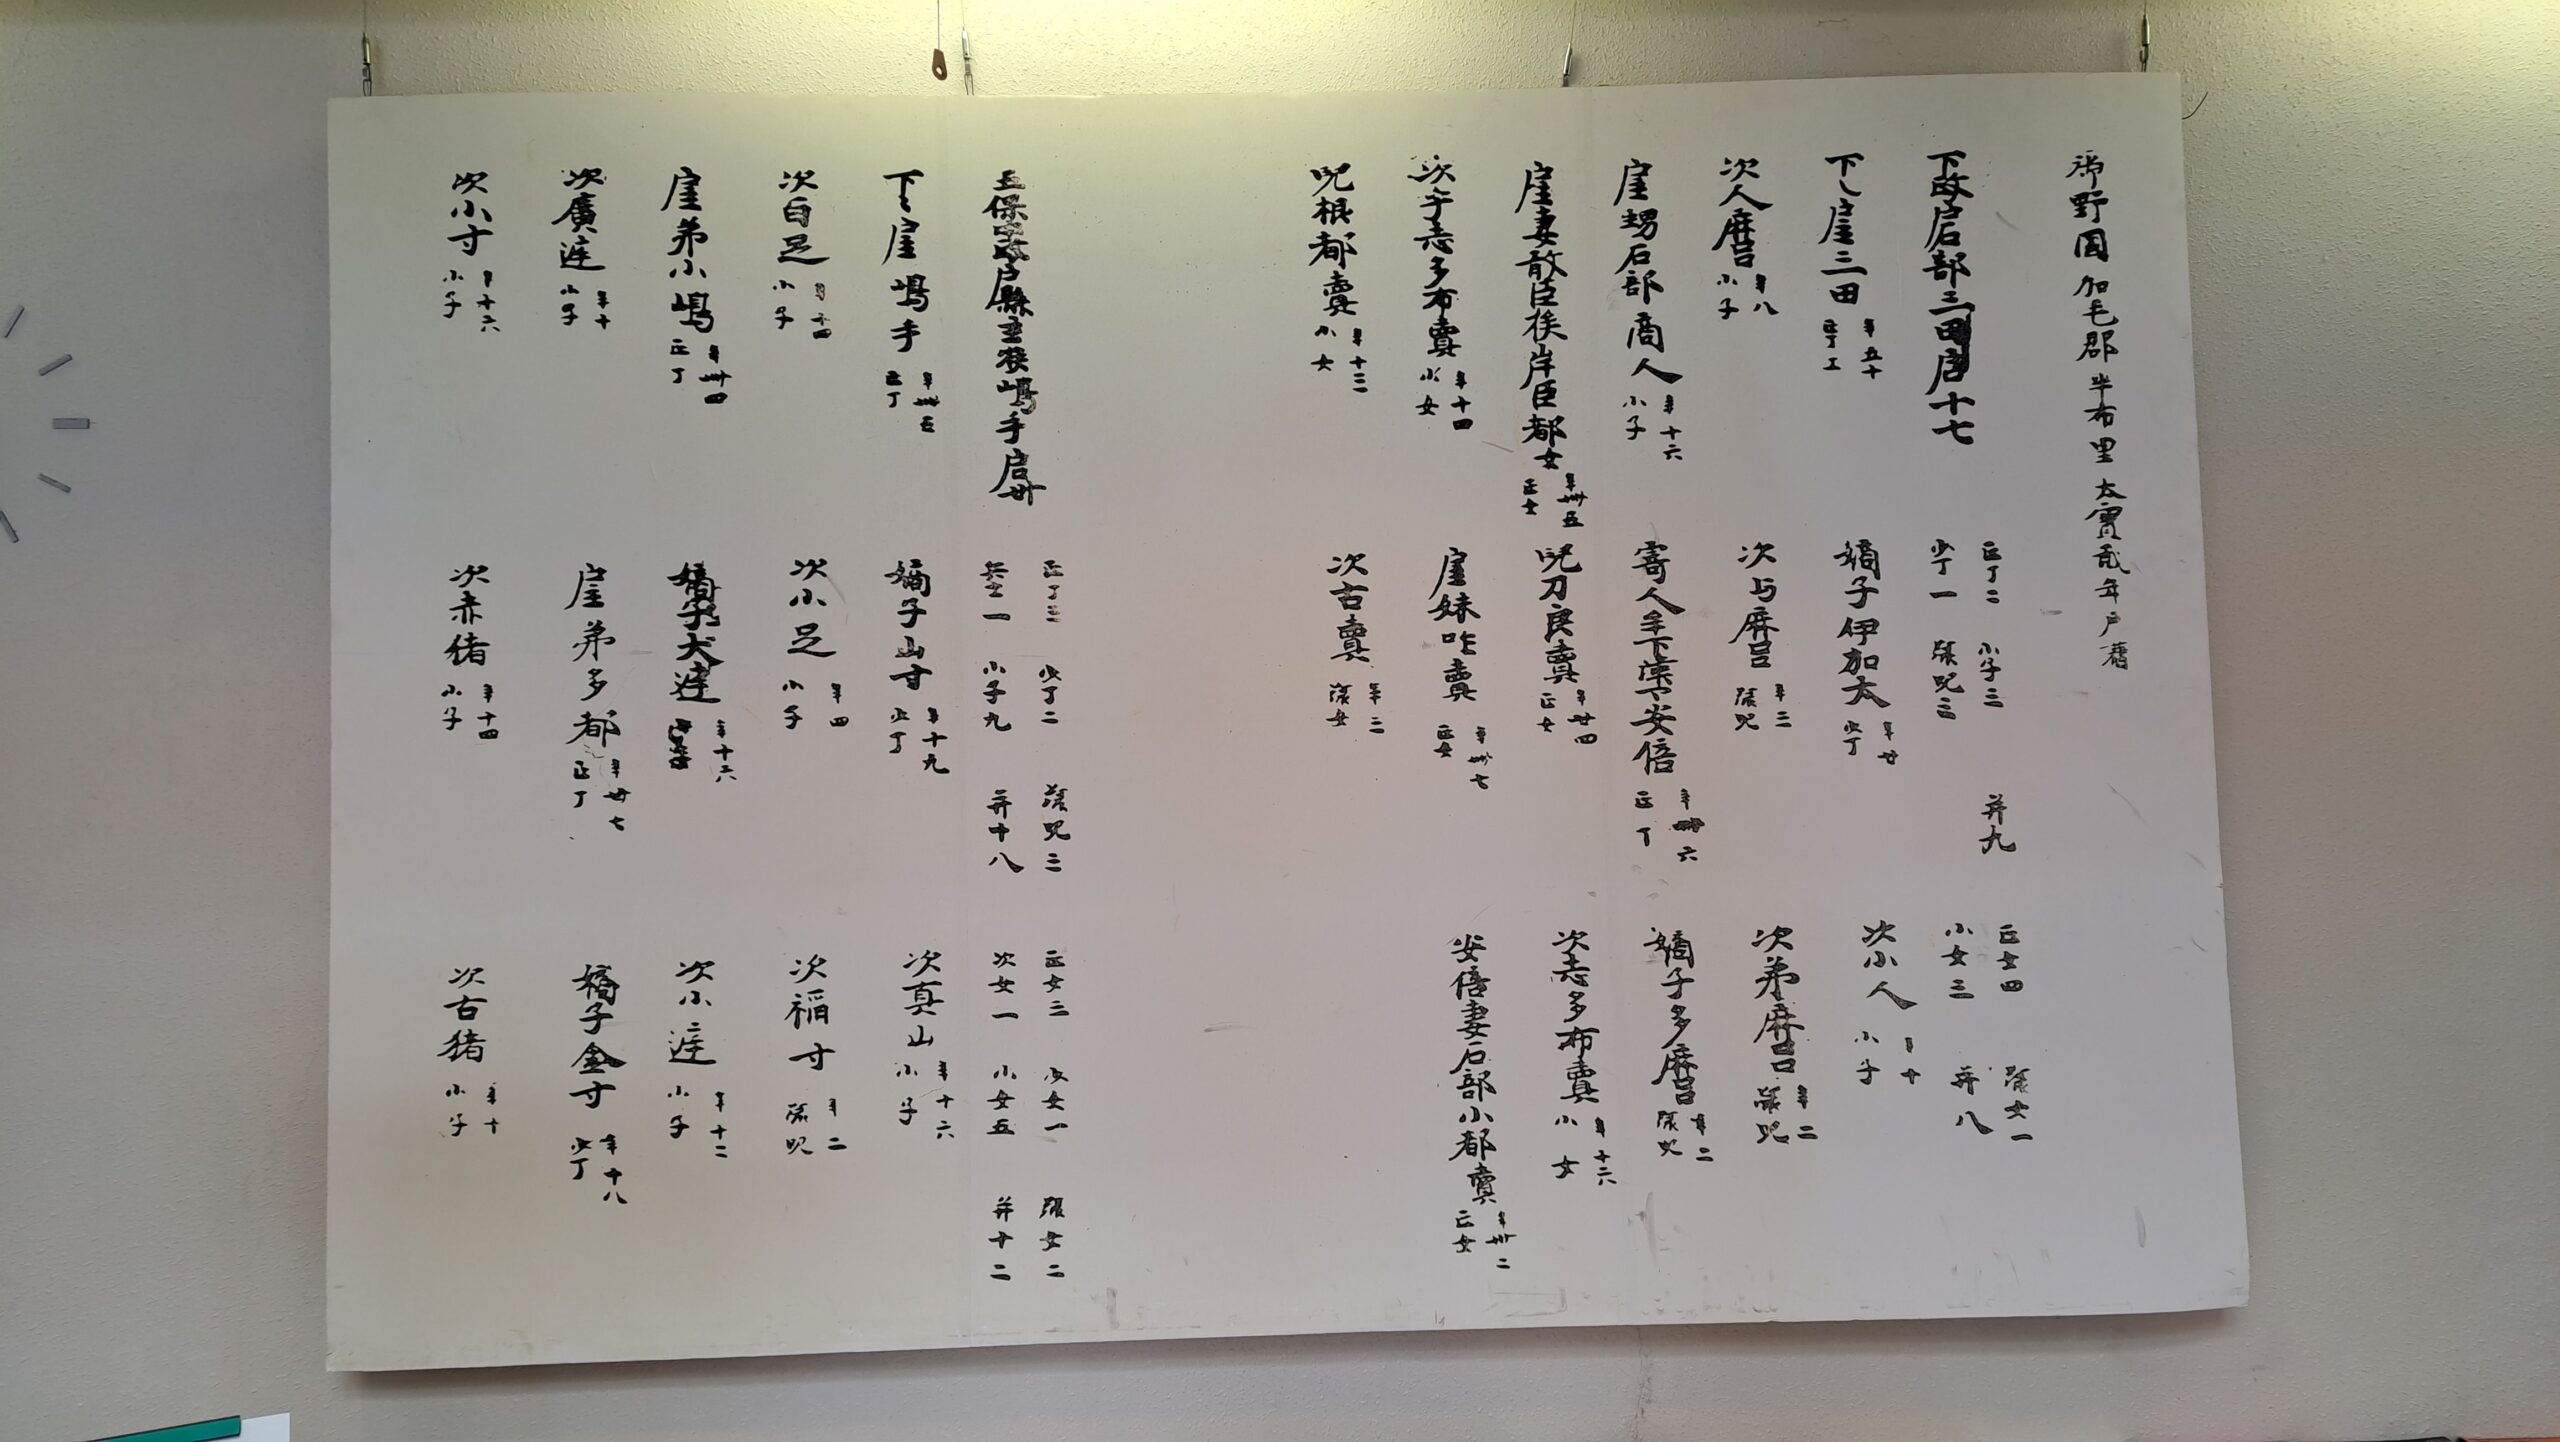 御野国加毛郡半布里太寶貳年戸籍
下政戸石部三田戸十七
正丁二 小子三 并九
少丁一 緑児三
正女四 緑女一
小女三 并八
下〻戸主三田 年五十 正丁工
嫡子伊加太 年廿 少丁
次小人 年十 小子
次人麻呂 年八 小子
次与麻呂 年三 緑児
次弟麻呂 年二 緑児
戸主甥石部商人 年十六 小子
寄人 安倍 年卌六 正丁
嫡子多麻呂 年二 緑児
戸主妻敢臣族岸臣都女 年卌五 正女
児刀良賣 年廿四 正女
次志多布賣 年十六 小女
次宇志多布賣 年十四 小女
戸主妹咋賣 年卌七 正女
安倍妻石部小都賣 年卅二 正女
児根都賣 年十三 小女
次古賣 年二 緑女
五保中政戸縣主族嶋手戸卅
正丁三 少丁二 緑児三
兵士一 小子九 并十八
正女三 少女一 緑女二
次女一 小女五 并十二
下〻戸主嶋手 年卌五 正丁
嫡子山寸 年十九 少丁
次真山 年十六 小子
次白足 年十四 小子
次小足 年四 小子
次稲寸 年二 緑児
戸主弟小嶋 年卌四 正丁
嫡子犬 年十六
次小 年十二 小子
次廣 年十 小子
戸主弟多都 年卅七 正丁
嫡子金寸 年十八 少丁
次小寸 年十六 小子
次赤猪 年十四 小子
次古猪 年十 小子